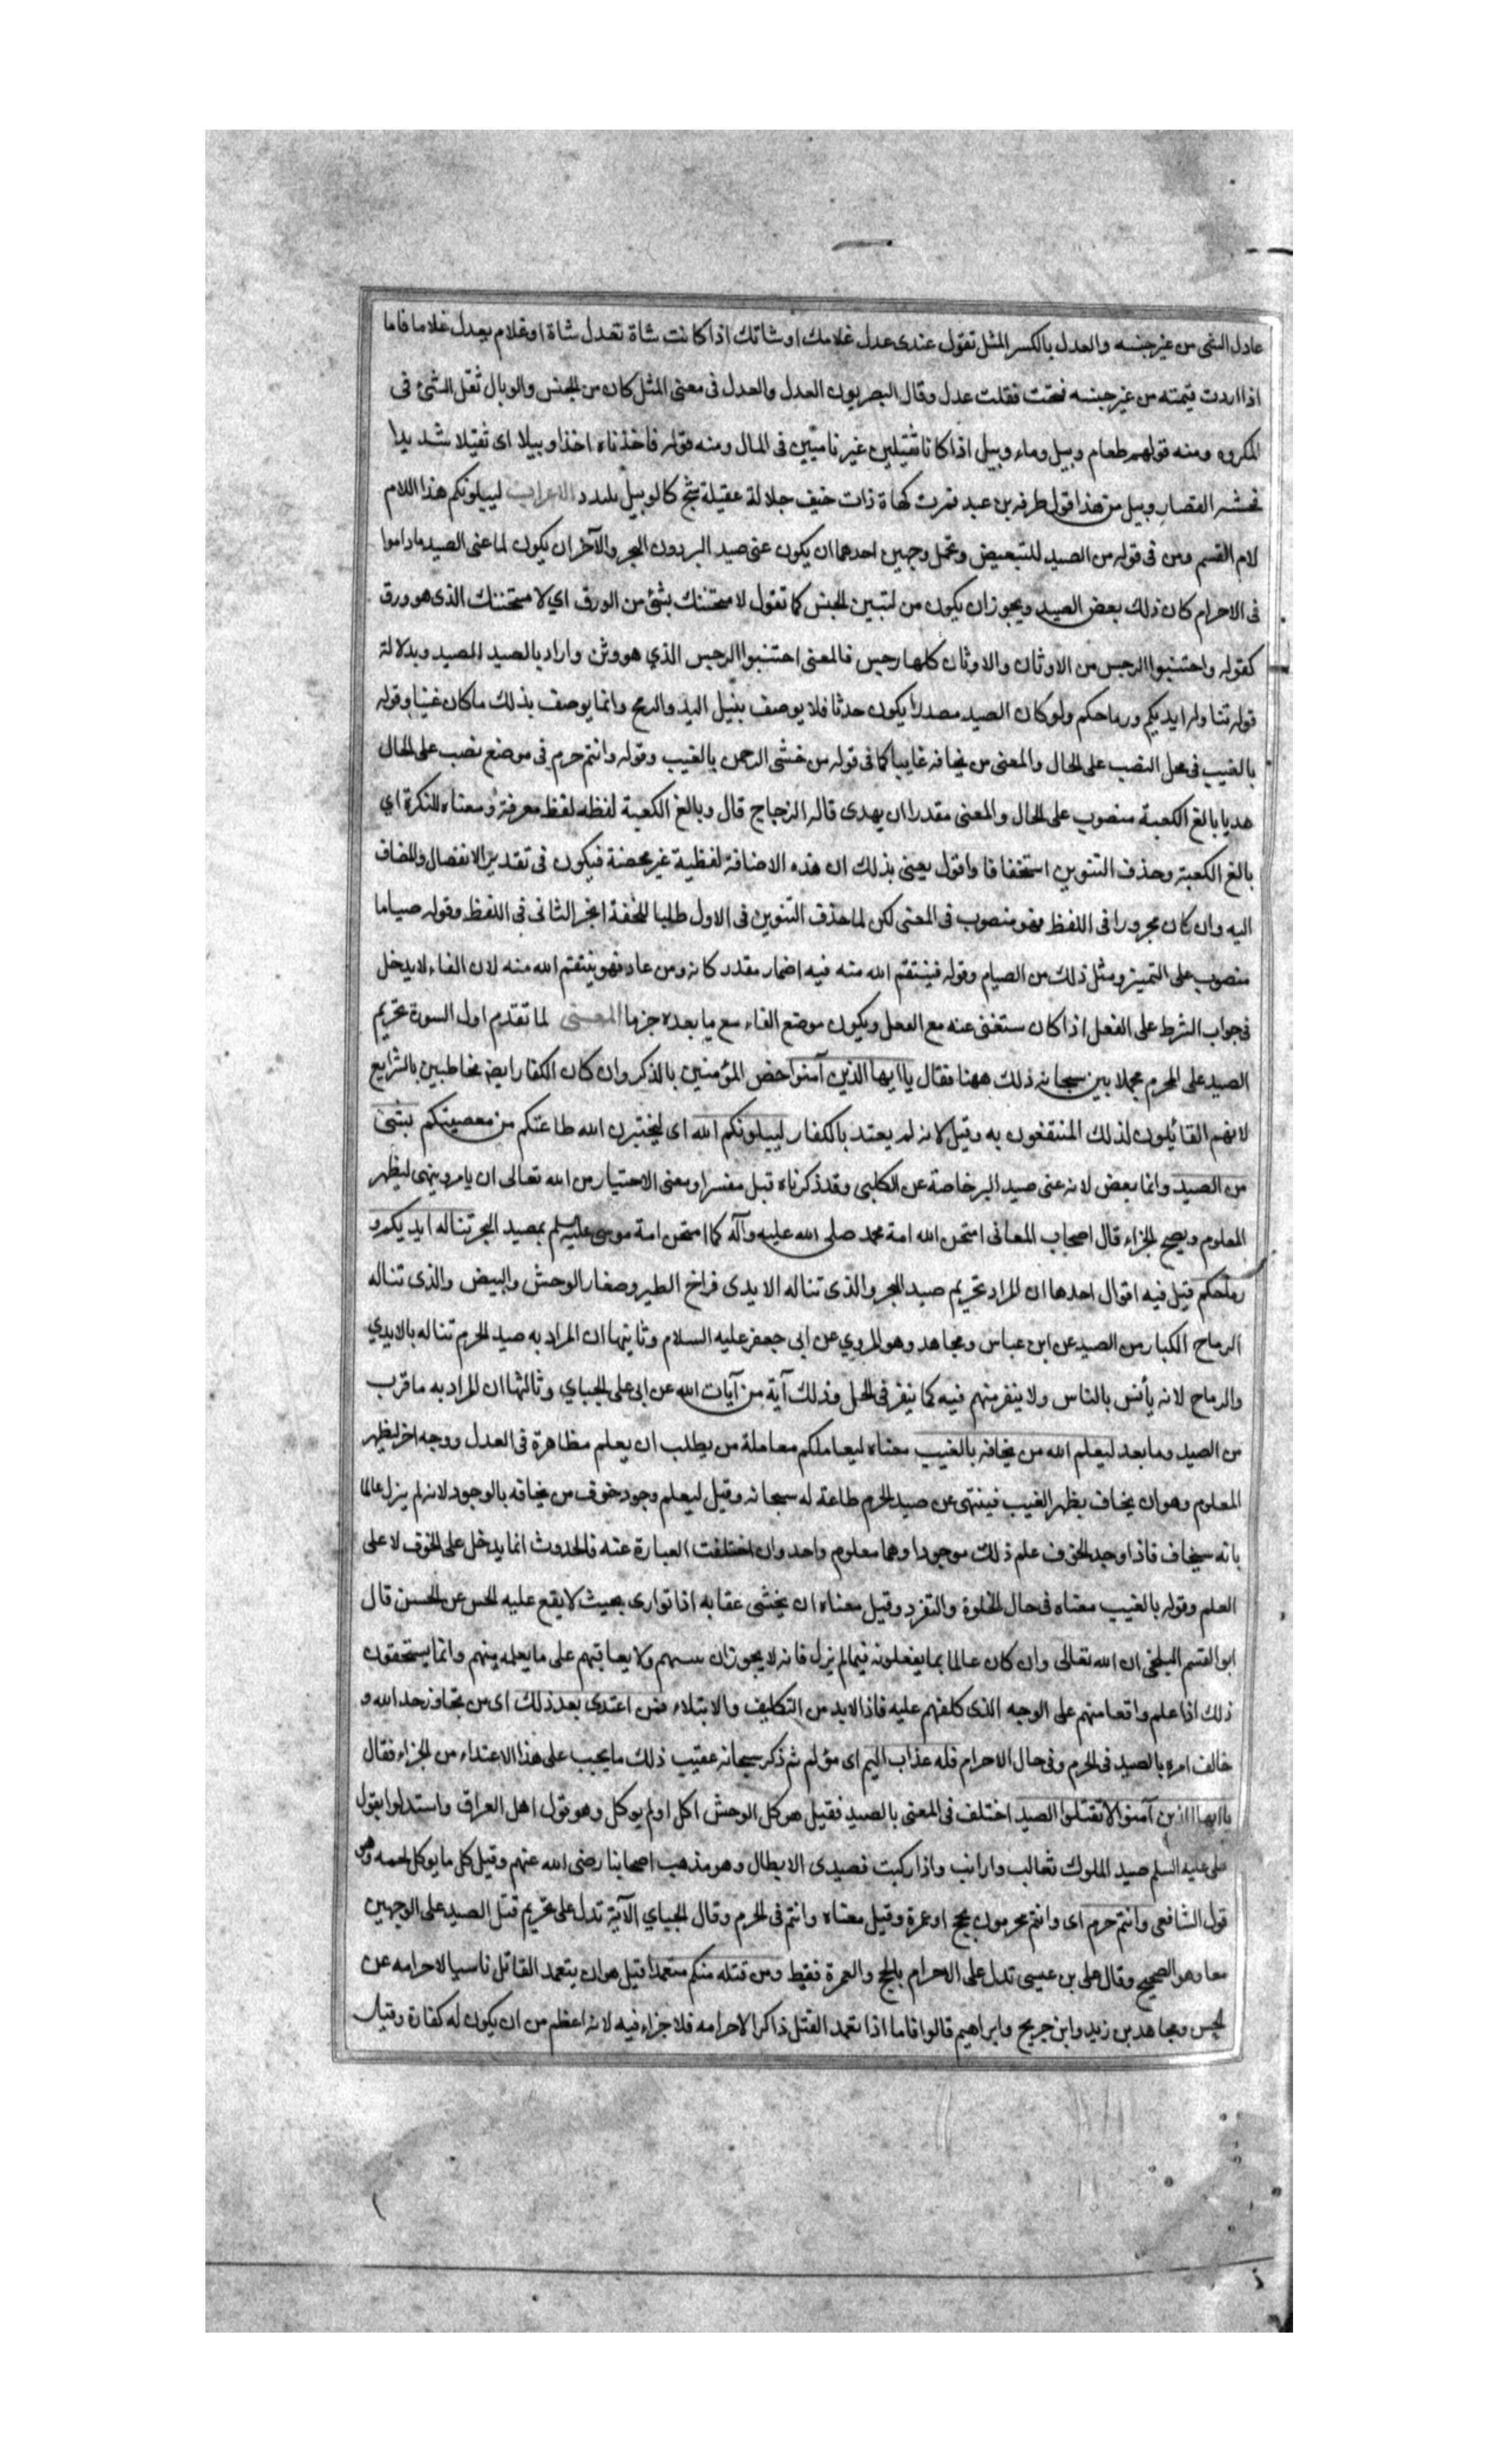 عادل الشی من غیر جنسه والعدل بالکسر المثل تقول عندی عدل غلامک او شاتک اذا کانت شاة تعدل شاة او غلام یعدل غلاما فاما
اذا اردت قیمته من غیر جنسه فتحت فقلت عدل وقال البصریون العدل والعدل فی معنی المثل کان من الجنس والوبال ثقل الشئ فی
المکروه ومنه قولهم طعام وبیل وماء وبیل اذا کانا ثقیلین غیر نامیین فی المال ومنه قوله فاخذناه اخذا وبیلا ای ثقیلا شدیدا
لخشبه القصار وبیل من هذا قول طرفه بن عبد فمرت کهاة ذات خیف جلالة عقیلة شیخ کالوبیل یلندد الاعراب لیبلونکم هذا اللام
لام القسم ومن فی قوله من الصید للتبعیض وتحتمل وجهین احدهما ان یکون عنی صید البر دون البحر والآخر ان یکون لما عنی الصید ماداموا
فی الاحرام کان ذلک بعض الصید ویجوز ان یکون من لتبین الجنس کما تقول لامتحننک بشئ من الورق ای لامتحننک الذی هو ورق
کقوله واجتنبوا الرجس من الاوثان والاوثان کلها رجس فالمعنی اجتنبوا الرجس الذی هو وثن واراد بالصید المصید وبدلالة
قوله تناوله ایدیکم ورماحکم ولو کان الصید مصدرا یکون حدثا فلا یوصف بنیل الید والرمح وانما یوصف بذلک ما کان عینا وقوله
بالغیب فی محل النصب علی الحال والمعنی من یخافه غایبا کما فی قوله من خشی الرحمن بالغیب وقوله وانتم حرم فی موضع نصب علی الحال
هدیا بالغ الکعبة منصوب علی الحال والمعنی مقدرا ان یهدی قاله الزجاج قال وبالغ الکعبة لفظه لفظ معرفة ومعناه النکرة ای
بالغ الکعبة وحذف التنوین استخفافا واقول یعنی بذلک ان هذه الاضافة لفظیة غیر محضة فیکون فی تقدیر الانفصال والمضاف
الیه وان کان مجرورا فی اللفظ فهو منصوب فی المعنی لکن لما حذف التنوین فی الاول طلبا للخفة انجر الثانی فی اللفظ وقوله صیاما
منصوب علی التمییز ومثل ذلک من الصیام وقوله فینتقم الله منه فیه اضمار مقدر کانه ومن عاد فهو ینتقم الله منه لان الفاء لا یدخل
فی جواب الشرط علی الفعل اذا کان مستغنی عنه مع الفعل ویکون موضع الفاء مع ما بعده جزما المعنی لما تقدم اول السورة تحریم
الصید علی المحرم مجملا بین سبحانه ذلک ههنا فقال یا ایها الذین آمنوا خص المؤمنین بالذکر وان کان الکفار ایضا مخاطبین بالشرایع
لانهم القائلون لذلک المنتفعون به وقیل لانه لم یعتد بالکفار لیبلونکم الله ای لیختبرن الله طاعتکم من معصیتکم بشئ
من الصید وانما بعض لانه عنی صید البر خاصة عن الکلبی وقد ذکرناه قبل مفسرا ومعنی الاختبار من الله تعالی ان یامر وینهی لیظهر
المعلوم ویصح الجزاء قال اصحاب المعانی امتحن الله امة محمد صلی الله علیه وآله کما امتحن امة موسی علیه السلم بصید البحر تناله ایدیکم و
رماحکم قیل فیه اقوال احدها ان المراد تحریم صید البحر والذی تناله الایدی فراخ الطیر وصغار الوحش والبیض والذی تناله
الرماح الکبار من الصید عن ابن عباس ومجاهد وهو المروی عن ابی جعفر علیه السلام وثانیها ان المراد به صید الحرم تناله بالایدی
والرماح لانه یأنس بالناس ولا ینفر منهم فیه کما ینفر فی الحل وذلک آیة من آیات الله عن ابی علی الجبای وثالثها ان المراد به ما قرب
من الصید وما بعد لیعلم الله من یخافه بالغیب معناه لیعاملکم معاملة من یطلب ان یعلم مظاهرة فی العدل ووجه اخر لیظهر
المعلوم وهو ان یخاف بظهر الغیب فینتهی عن صید الحرم طاعة له سبحانه وقیل لیعلم وجود خوف من یخافه بالوجود لانه لم یزل عالما
بانه سیخاف فاذا وجد الخوف علم ذلک موجودا وهما معلوم واحد وان اختلفت العبارة عنه فالحدوث انما یدخل علی الخوف لا علی
العلم وقوله بالغیب معناه فی حال الخلوة والتفرد وقیل معناه ان یخشی عقابه اذا تواری بحیث لا یقع علیه الحس عن الحسن قال
ابو القسم البلخی ان الله تعالی وان کان عالما بما یفعلونه فیما لم یزل فانه لا یجوز ان یثیبهم ولا یعاقبهم علی ما یعلمه منهم وانما یستحقون
ذلک اذا علم واقعا منهم علی الوجه الذی کلفهم علیه فاذا لابد من التکلیف والابتلاء فمن اعتدی بعد ذلک ای من تجاوز حد الله و
خالف امره بالصید فی الحرم وفی حال الاحرام فله عذاب الیم ای مؤلم ثم ذکر سبحانه عقیب ذلک ما یجب علی هذا الاعتداء من الجزاء فقال
یا ایها الذین آمنوا لا تقتلوا الصید اختلف فی المعنی بالصید فقیل هو کل الوحش اکل او لم یوکل وهو قول اهل العراق واستدلوا بقول
علی علیه السلم صید الملوک ثعالب وارانب واذا رکبت فصیدی الابطال وهو مذهب اصحابنا رضی الله عنهم وقیل کل ما یوکل لحمه وهو
قول الشافعی وانتم حرم ای وانتم محرمون بحج او عمرة وقیل معناه وانتم فی الحرم وقال الجبای الآیة تدل علی تحریم قتل الصید علی الوجهین
معا وهو الصحیح وقال علی بن عیسی تدل علی الاحرام بالحج والعمرة فقط ومن قتله منکم متعمدا قیل هو ان یتعمد القاتل ناسیا لاحرامه عن
الحسن ومجاهد بن زید وابن جریج وابراهیم قالوا فاما اذا تعمد القتل ذاکرا لاحرامه فلا جزاء فیه لانه اعظم من ان یکون له کفارة وقیل